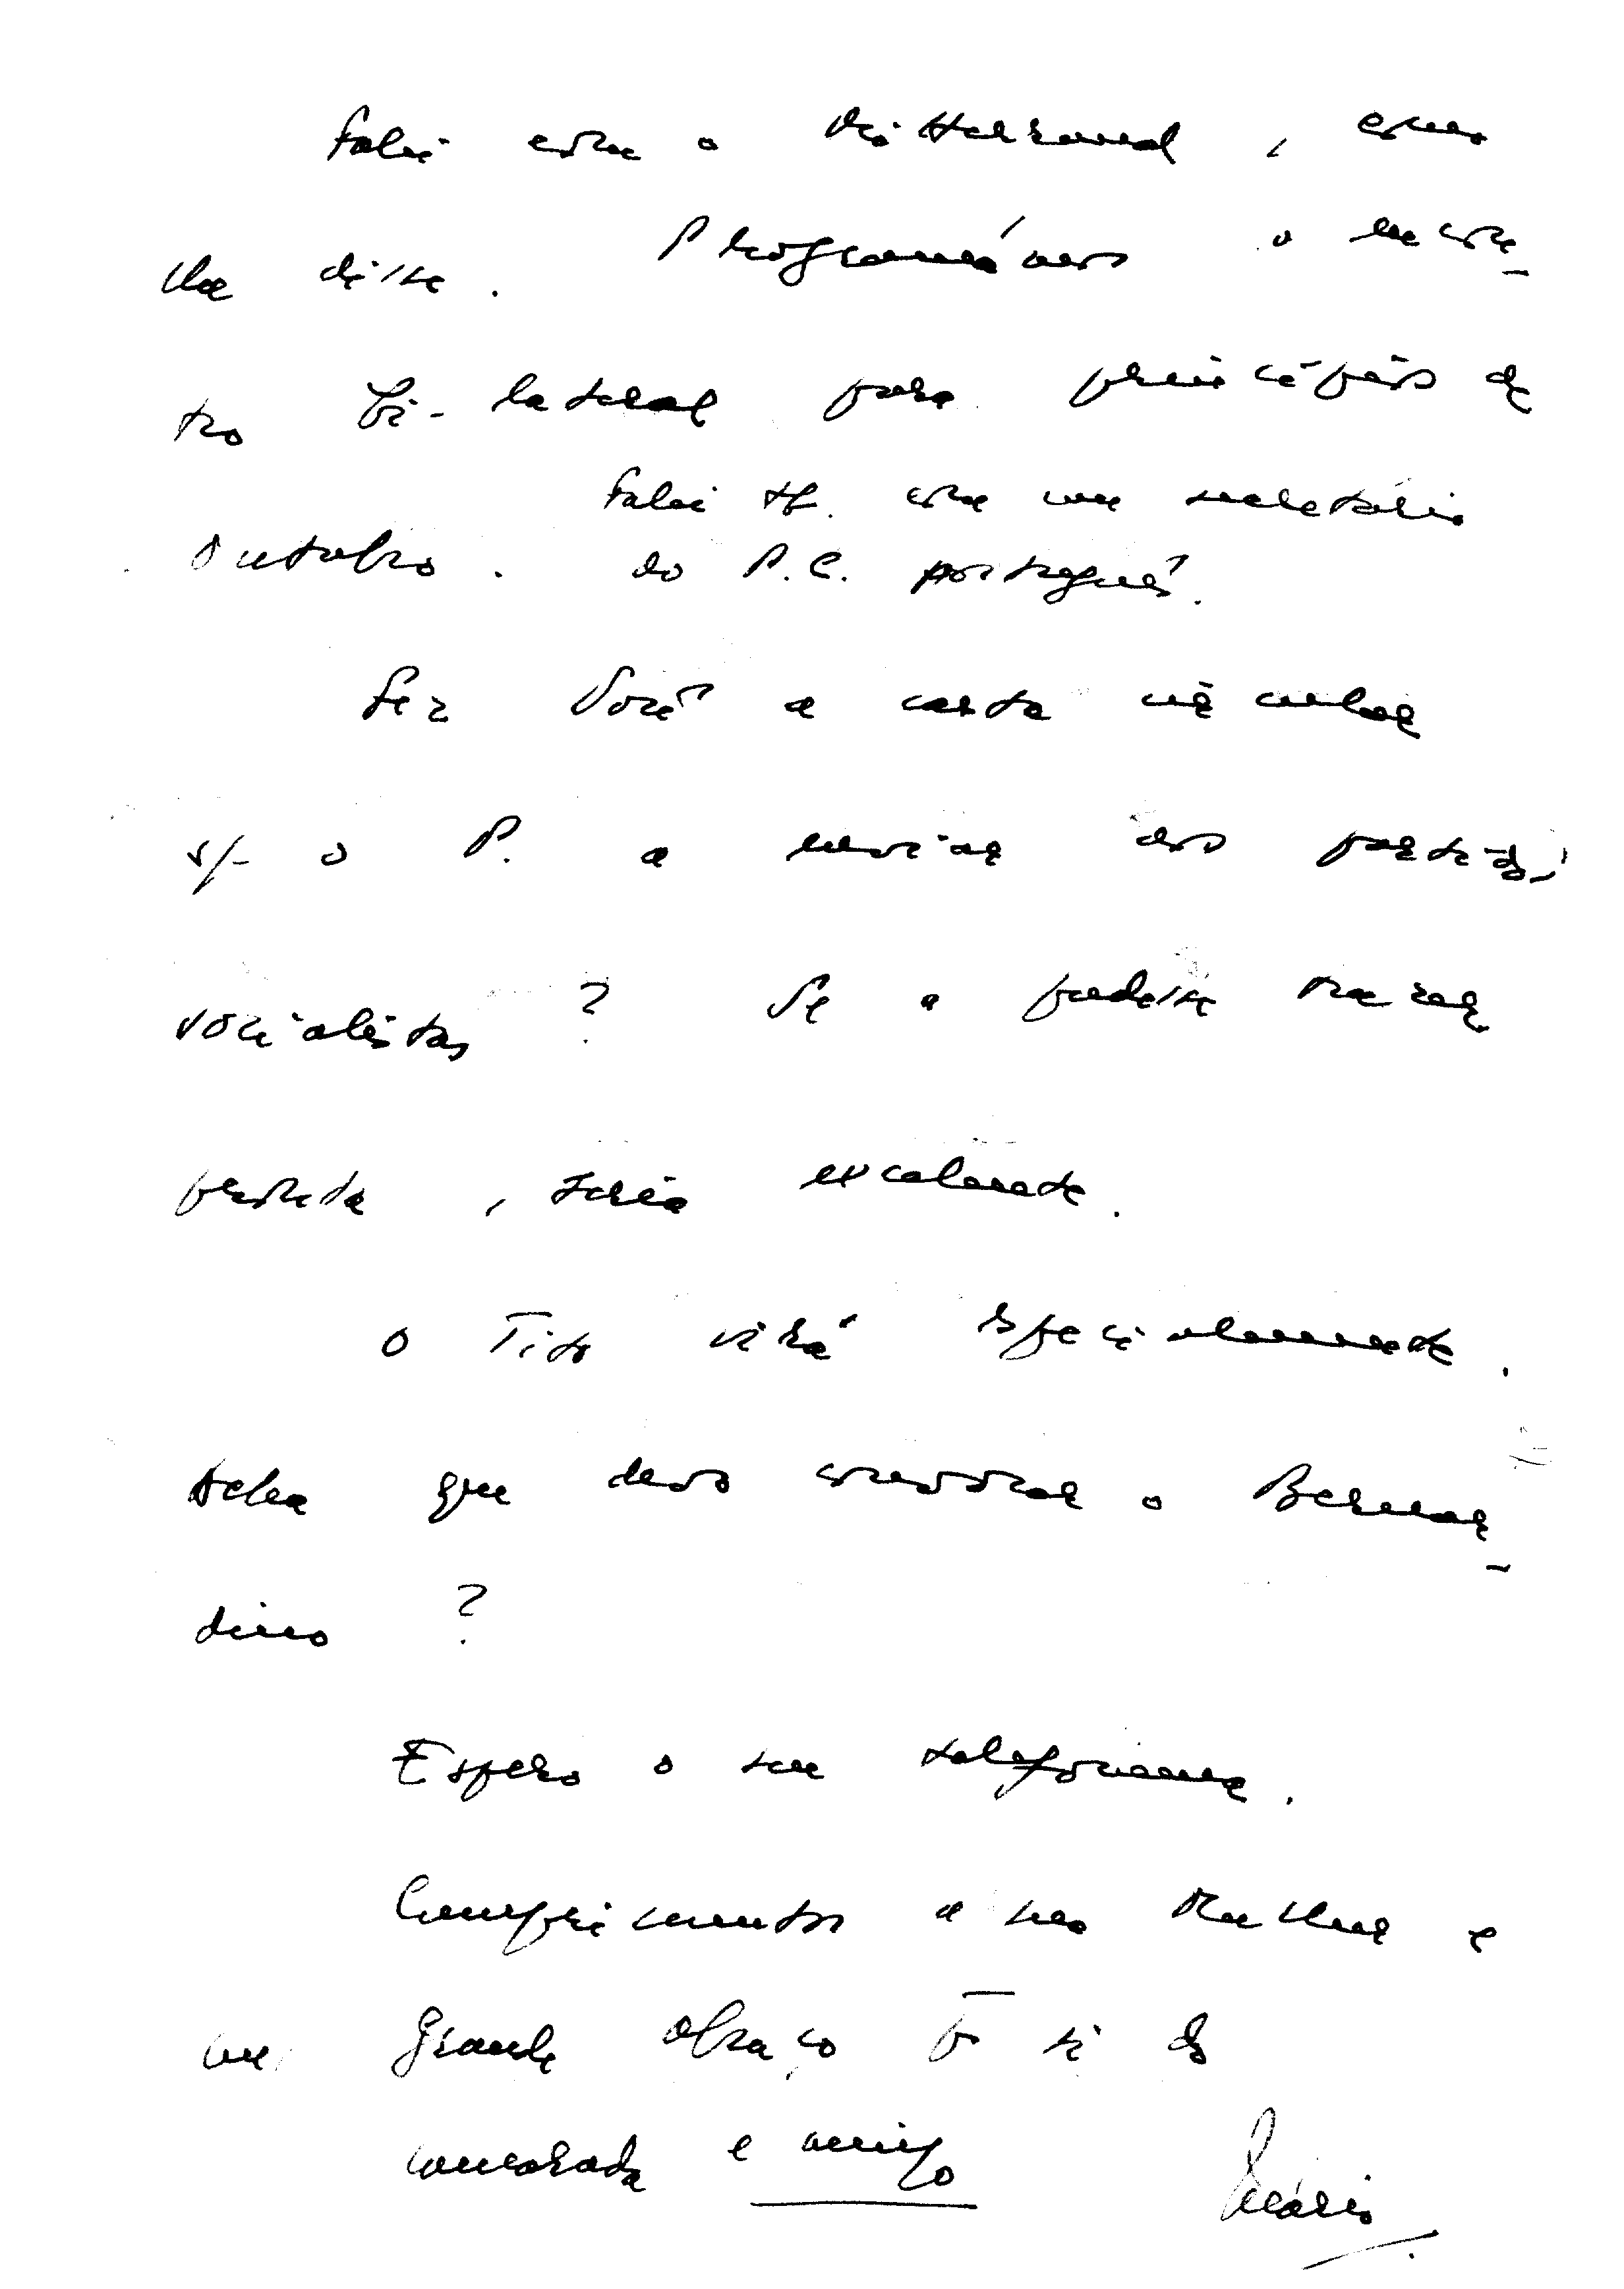 Falei com o Mitterrand, como
lhe disse. Programámos o encon-
tro bi-lateral para princípios de
Falei tb. com um secretário
Outubro. do P.C. português.
Fez Você a carta circular
s/ o P. a enviar aos partidos
socialistas? Se a pudesse trazer
pronta, seria excelente.
O Tito virá especialmente.
Acha que devo convocar o Bernar-
dino?
Espero o seu telefonema.
Cumprimentos a sua Mulher e
um grande abraço p. si do
camarada e amigo
Mário